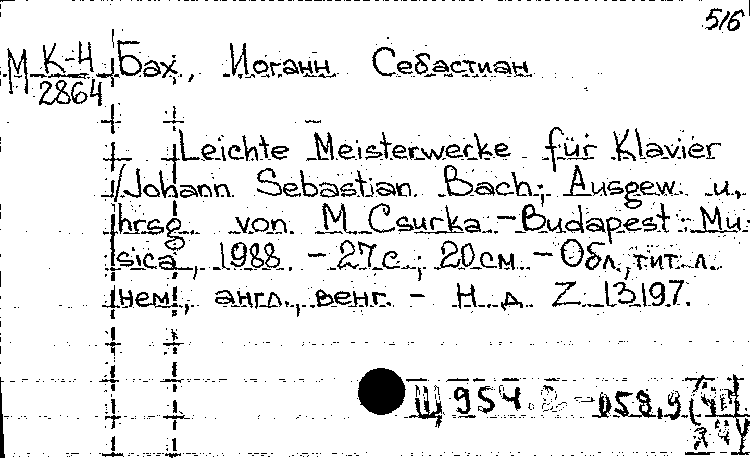 516
М К-4 Бах, Иоганн Себастиан
2864
Leichte Meisterwerke für Klavier
/Johann Sebastian Bach; Ausgew. u.
hrsg. von M Csurka - Budapest: Mu-
sica, 1988. - 27 с.; 20 см. - Обл., тит. л.
нем., англ., венг. - Н. д. Z 13197.
Щ 954.2-058.9(4В)
я44